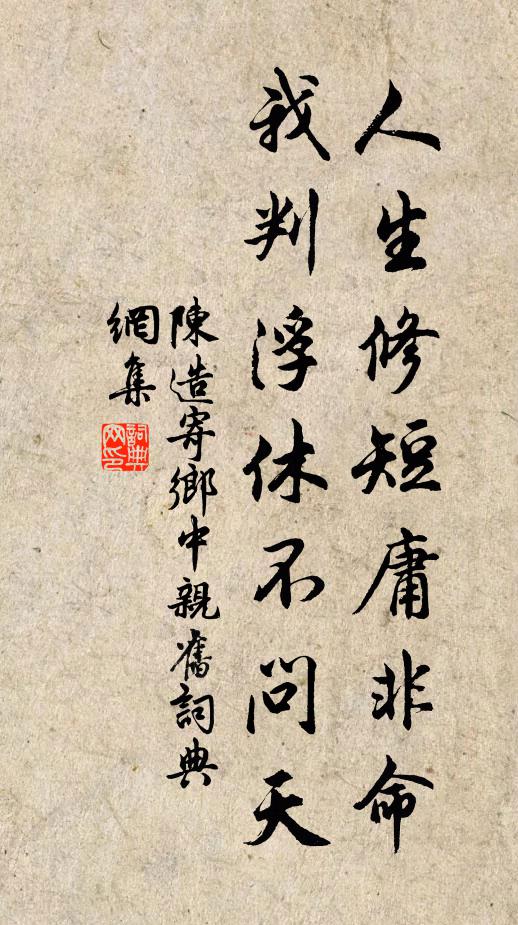 人生修短庸非命
我判浮休不問天
陳造寄鄉中親舊詞典
網集
詞典
网印